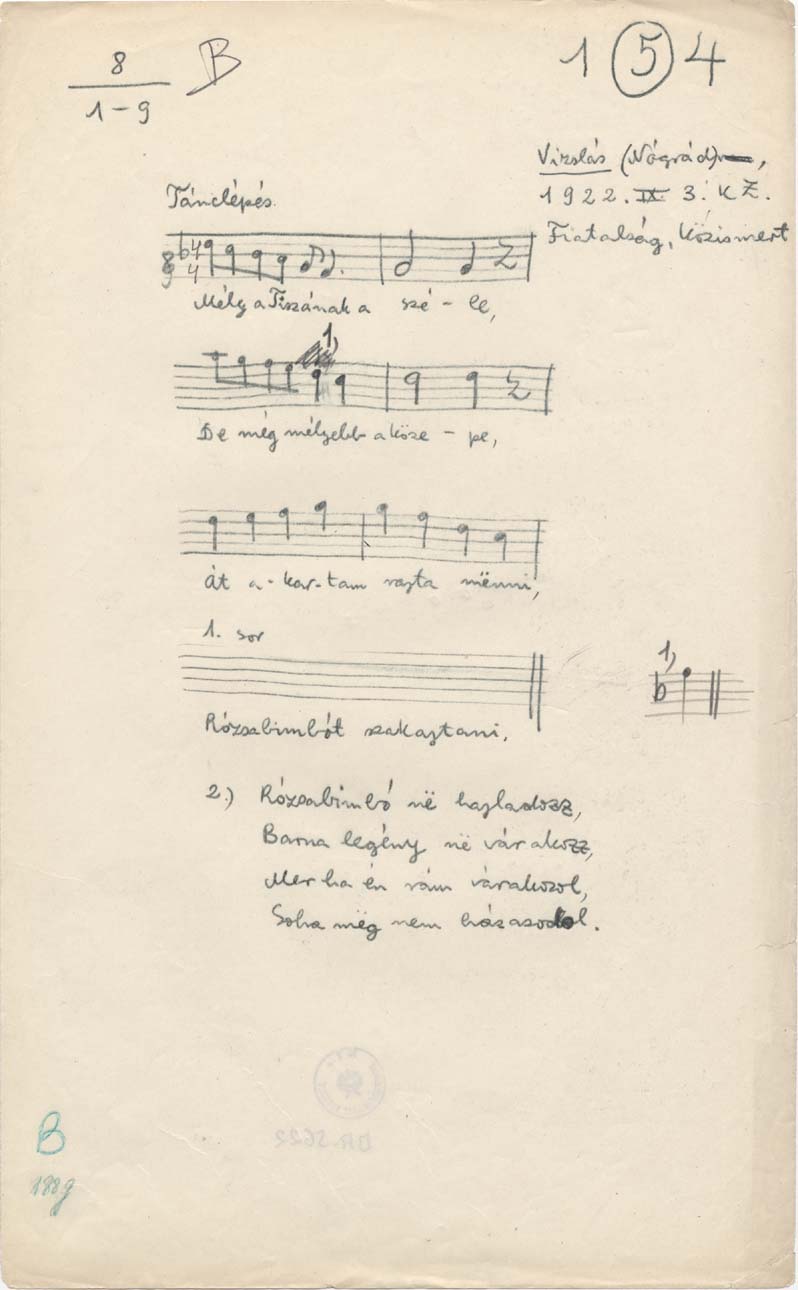 8
1-9
B
1 5 4
Vizslás (Nógrád),
1922. IX. 3. K Z.
Fiatalság, Közismert
Tánclépés.
4
4
Mély a Tiszának a szé - le,
1,
De még mélyebb a köze - pe,
Át a-kar-tam rajta mënni,
1. sor
1,
Rózsabimbót szakajtani.
2.) Rózsabimbó në hajladozz,
Barna legény në várakozz,
Mer ha én rám várakozol,
Soha mëg nem házasodol.
B
1889